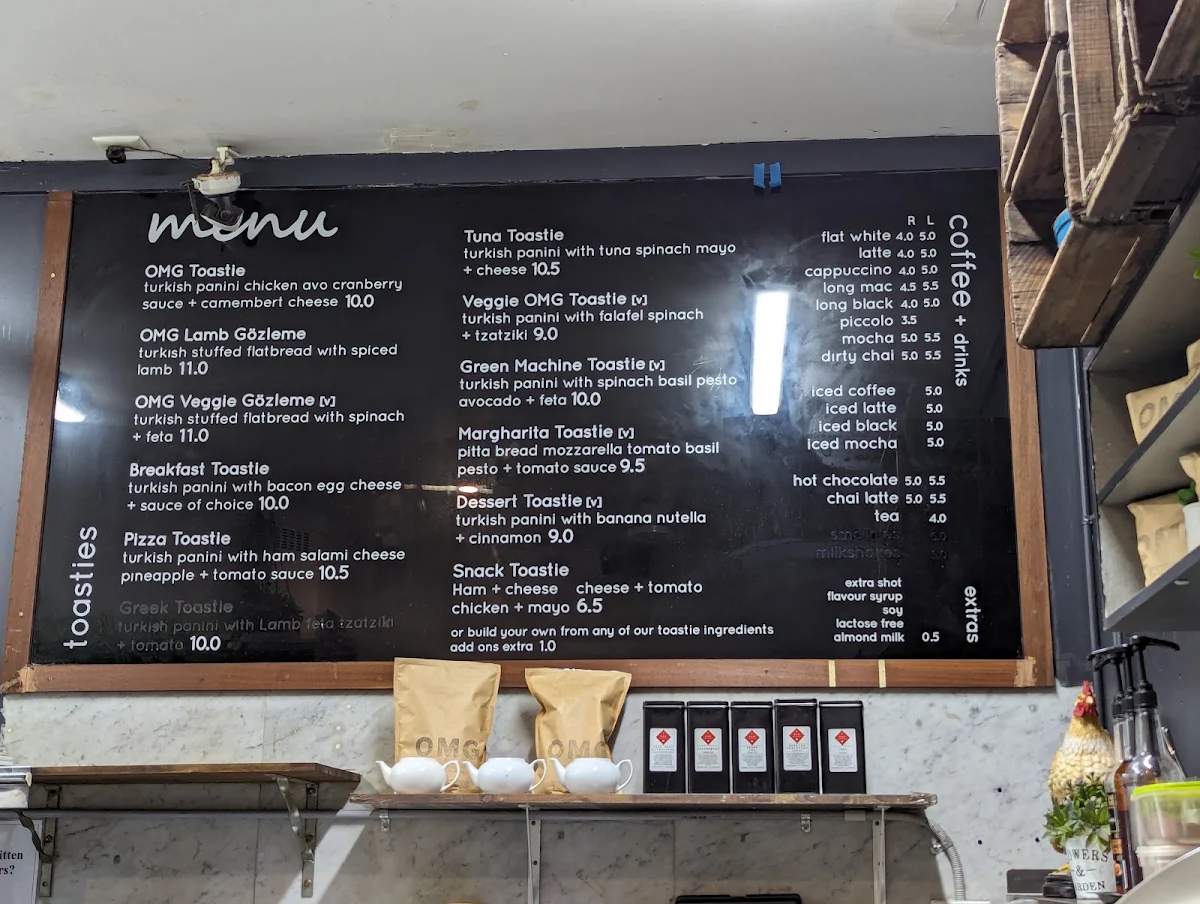 menu
OMG Toastie
turkish panini chicken avo cranberry
sauce + camembert cheese 10.0
OMG Lamb Gözleme
turkish stuffed flatbread with spiced
lamb 11.0
OMG Veggie Gözleme [v]
turkish stuffed flatbread with spinach
+ feta 11.0
Breakfast Toastie
turkish panini with bacon egg cheese
+ sauce of choice 10.0
Pizza Toastie
turkish panini with ham salami cheese
pineapple + tomato sauce 10.5
Greek Toastie
turkish panini with Lamb feta tzatziki
+ tomato 10.0
toasties
Tuna Toastie
turkish panini with tuna spinach mayo
+ cheese 10.5
Veggie OMG Toastie [v]
turkish panini with falafel spinach
+ tzatziki 9.0
Green Machine Toastie [v]
turkish panini with spinach basil pesto
avocado + feta 10.0
Margharita Toastie [v]
pitta bread mozzarella tomato basil
pesto + tomato sauce 9.5
Dessert Toastie [v]
turkish panini with banana nutella
+ cinnamon 9.0
Snack Toastie
Ham + cheese cheese + tomato
chicken + mayo 6.5
or build your own from any of our toastie ingredients
add ons extra 1.0
coffee + drinks
R L
flat white 4.0 5.0
latte 4.0 5.0
cappuccino 4.0 5.0
long mac 4.5 5.5
long black 4.0 5.0
piccolo 3.5
mocha 5.0 5.5
dirty chai 5.0 5.5
iced coffee 5.0
iced latte 5.0
iced black 5.0
iced mocha 5.0
hot chocolate 5.0 5.5
chai latte 5.0 5.5
tea 4.0
smoothies
milkshakes
extras
extra shot
flavour syrup
soy
lactose free
almond milk 0.5
OMG
OMG